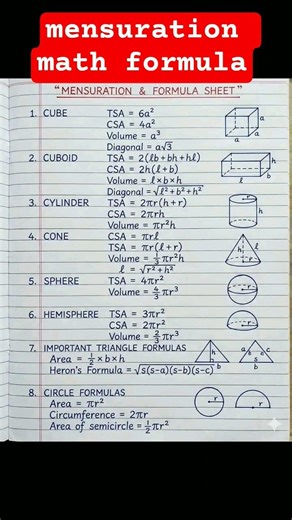 mensuration
math formula
"MENSURATION & FORMULA SHEET"
1. CUBE TSA = 6a²
CSA = 4a²
Volume = a³
Diagonal = a√3
a
a
a
2. CUBOID TSA = 2(lb+bh+hl)
CSA = 2h(l+b)
Volume = l×b×h
Diagonal=√l²+b²+h²
h
b
l
3. CYLINDER TSA = 2πr(h+r)
CSA = 2πrh
Volume = πr²h
r
h
4. CONE CSA = πrl
TSA = πr(l+r)
Volume = 1/3 πr²h
l = √r²+h²
h
l
r
5. SPHERE TSA = 4πr²
Volume = 4/3 πr³
r
6. HEMISPHERE TSA = 3πr²
CSA = 2πr²
Volume = 2/3 πr³
r
7. IMPORTANT TRIANGLE FORMULAS
Area = 1/2 ×b×h
Heron's Formula = √s(s-a)(s-b)(s-c)
h
b
a
s
c
s
b
8. CIRCLE FORMULAS
Area = πr²
Circumference = 2πr
Area of semicircle = 1/2 πr²
r
r